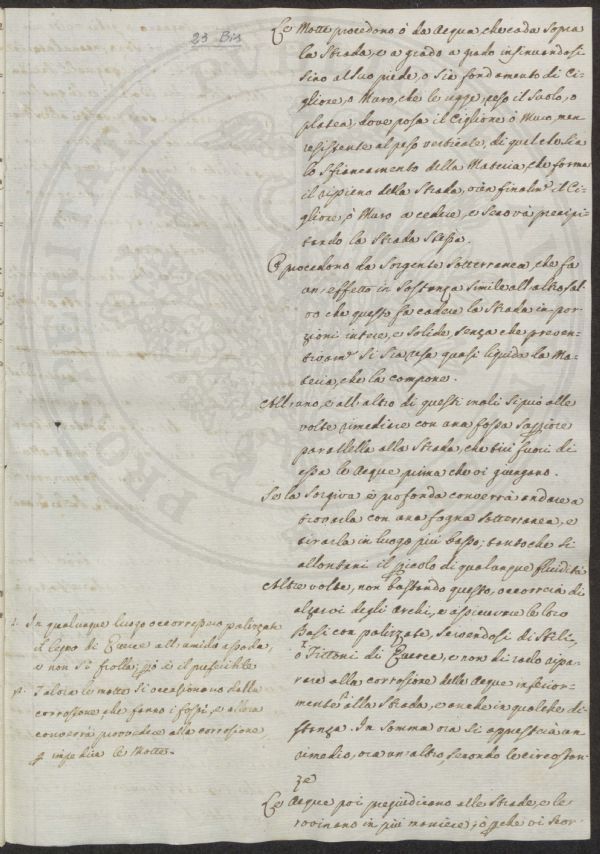 23 Bis
Le Motte procedono ò da Acqua, che cada sopra
la Strada, e a grado a grado insinuandosi
sino al suo piede, o sia fondamento di Ci-
gliore, o Muro, che le regge, reso il suolo, o
platea, dove posa il Ciglione ò Muro, non
resistente al peso verticale, di quel che sia
lo sfiancamento della Materia, che forma
il ripieno della Strada, vien finalm.e il Ci-
gliore, ò Muro a cedere, e se ne và precipi-
tando la Strada stessa.
O procedono da Sorgente sotterranea, che fa
un'effetto in sostanza simile all'altro sal-
vo che questo fa cadere la Strada in por-
zioni intere, e solide, senza che preven-
tivam.e si sia resa quasi liquida la Ma-
teria, che la compone.
All'uno, e all'altro di questi mali si può alle
volte rimediare con una fossa
parallella alla Strada, che tiri fuori di
essa le Acque prima che vi giungano.
Se la Sorgiva è profonda converrà andare a
trovarla con una fogna sotterranea, e
tirarla in luogo più basso; tanto che si
allontani il pericolo di qualunque fluidità
Altre volte, non bastando questo, occorrerà di
alzarvi degli Archi, e assicurare le loro
Basi con palizzate, servendosi di Stili,
o Tittoni di Querce, e non di rado ripa-
rare alla corrosione delle Acque inferior-
mente alla Strada, e anche in qualche di-
stanza. In somma ora si appresterà un
rimedio, ora un'altro, secondo le circostan-
ze
Le Acque poi pregiudicano alle Strade, e le
rovinano in più maniere; ò perche vi scor-
1. In qualunque luogo occorressero palizzate
il legno di Querce all'umido assoda,
e non si frolla; però è il preferibile
2. Talora le motte si cagionano dalla
corrosione, che fanno i fossi, e allora
converrà provvedere alla corrosione,
p impedire le Motte.